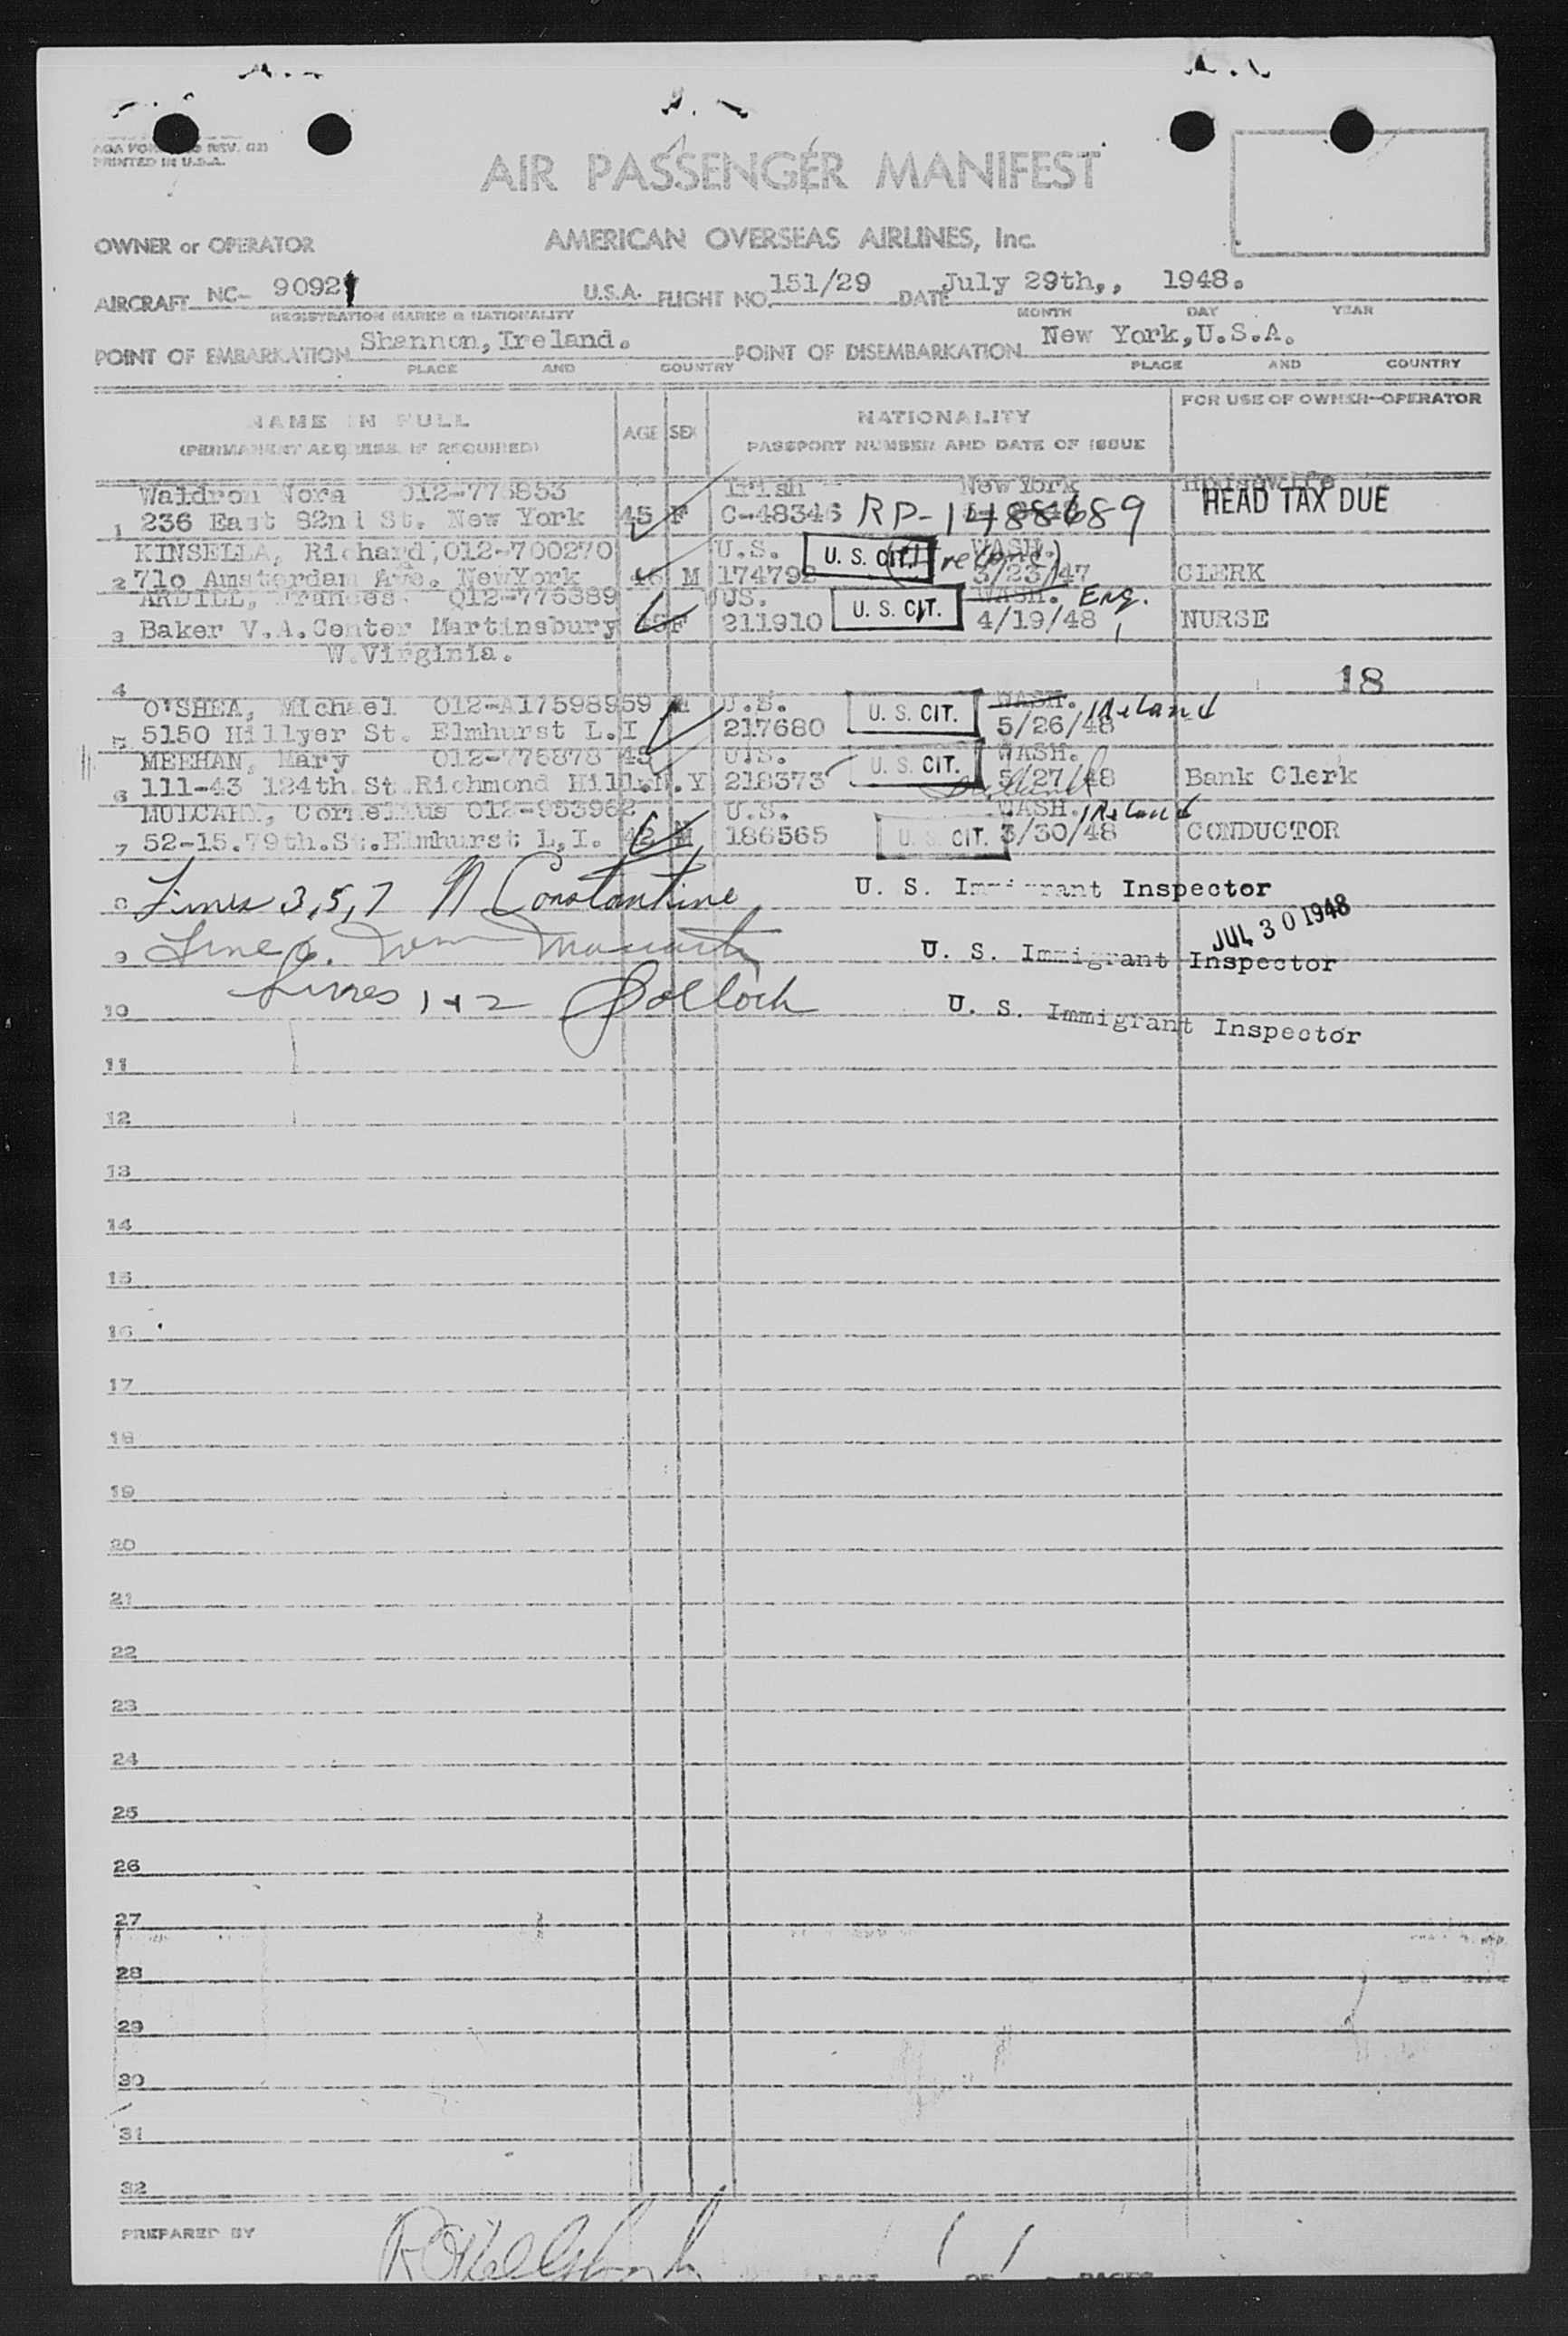 PRINTED IN U.S.A.
AIR PASSENGER MANIFEST
OWNER or OPERATOR AMERICAN OVERSEAS AIRLINES, Inc.
AIRCRAFT NC- 9092 U.S.A. FLIGHT NO. 151/29 DATE July 29th,, 1948.
REGISTRATION MARKS & NATIONALITY MONTH DAY YEAR
POINT OF EMBARKATION Shannon, Ireland. POINT OF DISEMBARKATION New York,U.S.A.
PLACE AND COUNTRY PLACE AND COUNTRY
NAME IN FULL AGE SEX NATIONALITY FOR USE OF OWNER-OPERATOR
(PERMANENT ADDRESS IF REQUIRED) PASSPORT NUMBER AND DATE OF ISSUE
Waldron Nora 012-775853 Irish New York Housewife
1 236 East 82nd St. New York 45 F C-48346 RP-1488689 HEAD TAX DUE
KINSELLA, Richard,012-700270 U.S. U. S. CIT. (Ireland) WASH.
2 710 Amsterdam Ave. NewYork 46 M 174792 3/23/47 CLERK
ARDILL, Frances. 012-775389 US. U. S. CIT. WASH. Eng.
3 Baker V.A.Center Martinsbury F 211910 4/19/48 NURSE
W.Virginia.
4 18
O'SHEA, Michael 012-A17598959 M U.S. U. S. CIT. WASH. Ireland
5 5150 Hillyer St. Elmhurst L.I 217680 5/26/48
MEEHAN, Mary 012-775878 45 U.S. U. S. CIT. WASH.
6 111-43 124th.St.Richmond Hill.N.Y 218373 5/27/48 Bank Clerk
MULCAHY, Cornelius 012-953962 U.S. U. S. CIT. WASH. Ireland
7 52-15.79th.St.Elmhurst L,I. 42 M 186565 3/30/48 CONDUCTOR
8 Lines 3,5,7 N Constantine U. S. Immigrant Inspector
JUL 30 1948
9 Line 6. Wm U. S. Immigrant Inspector
10 Lines 1+2 Pollock U. S. Immigrant Inspector
11
12
13
14
15
16
17
18
19
20
21
22
23
24
25
26
27
28
29
30
31
32
PREPARED BY
PAGE 1 OF 1 PAGES